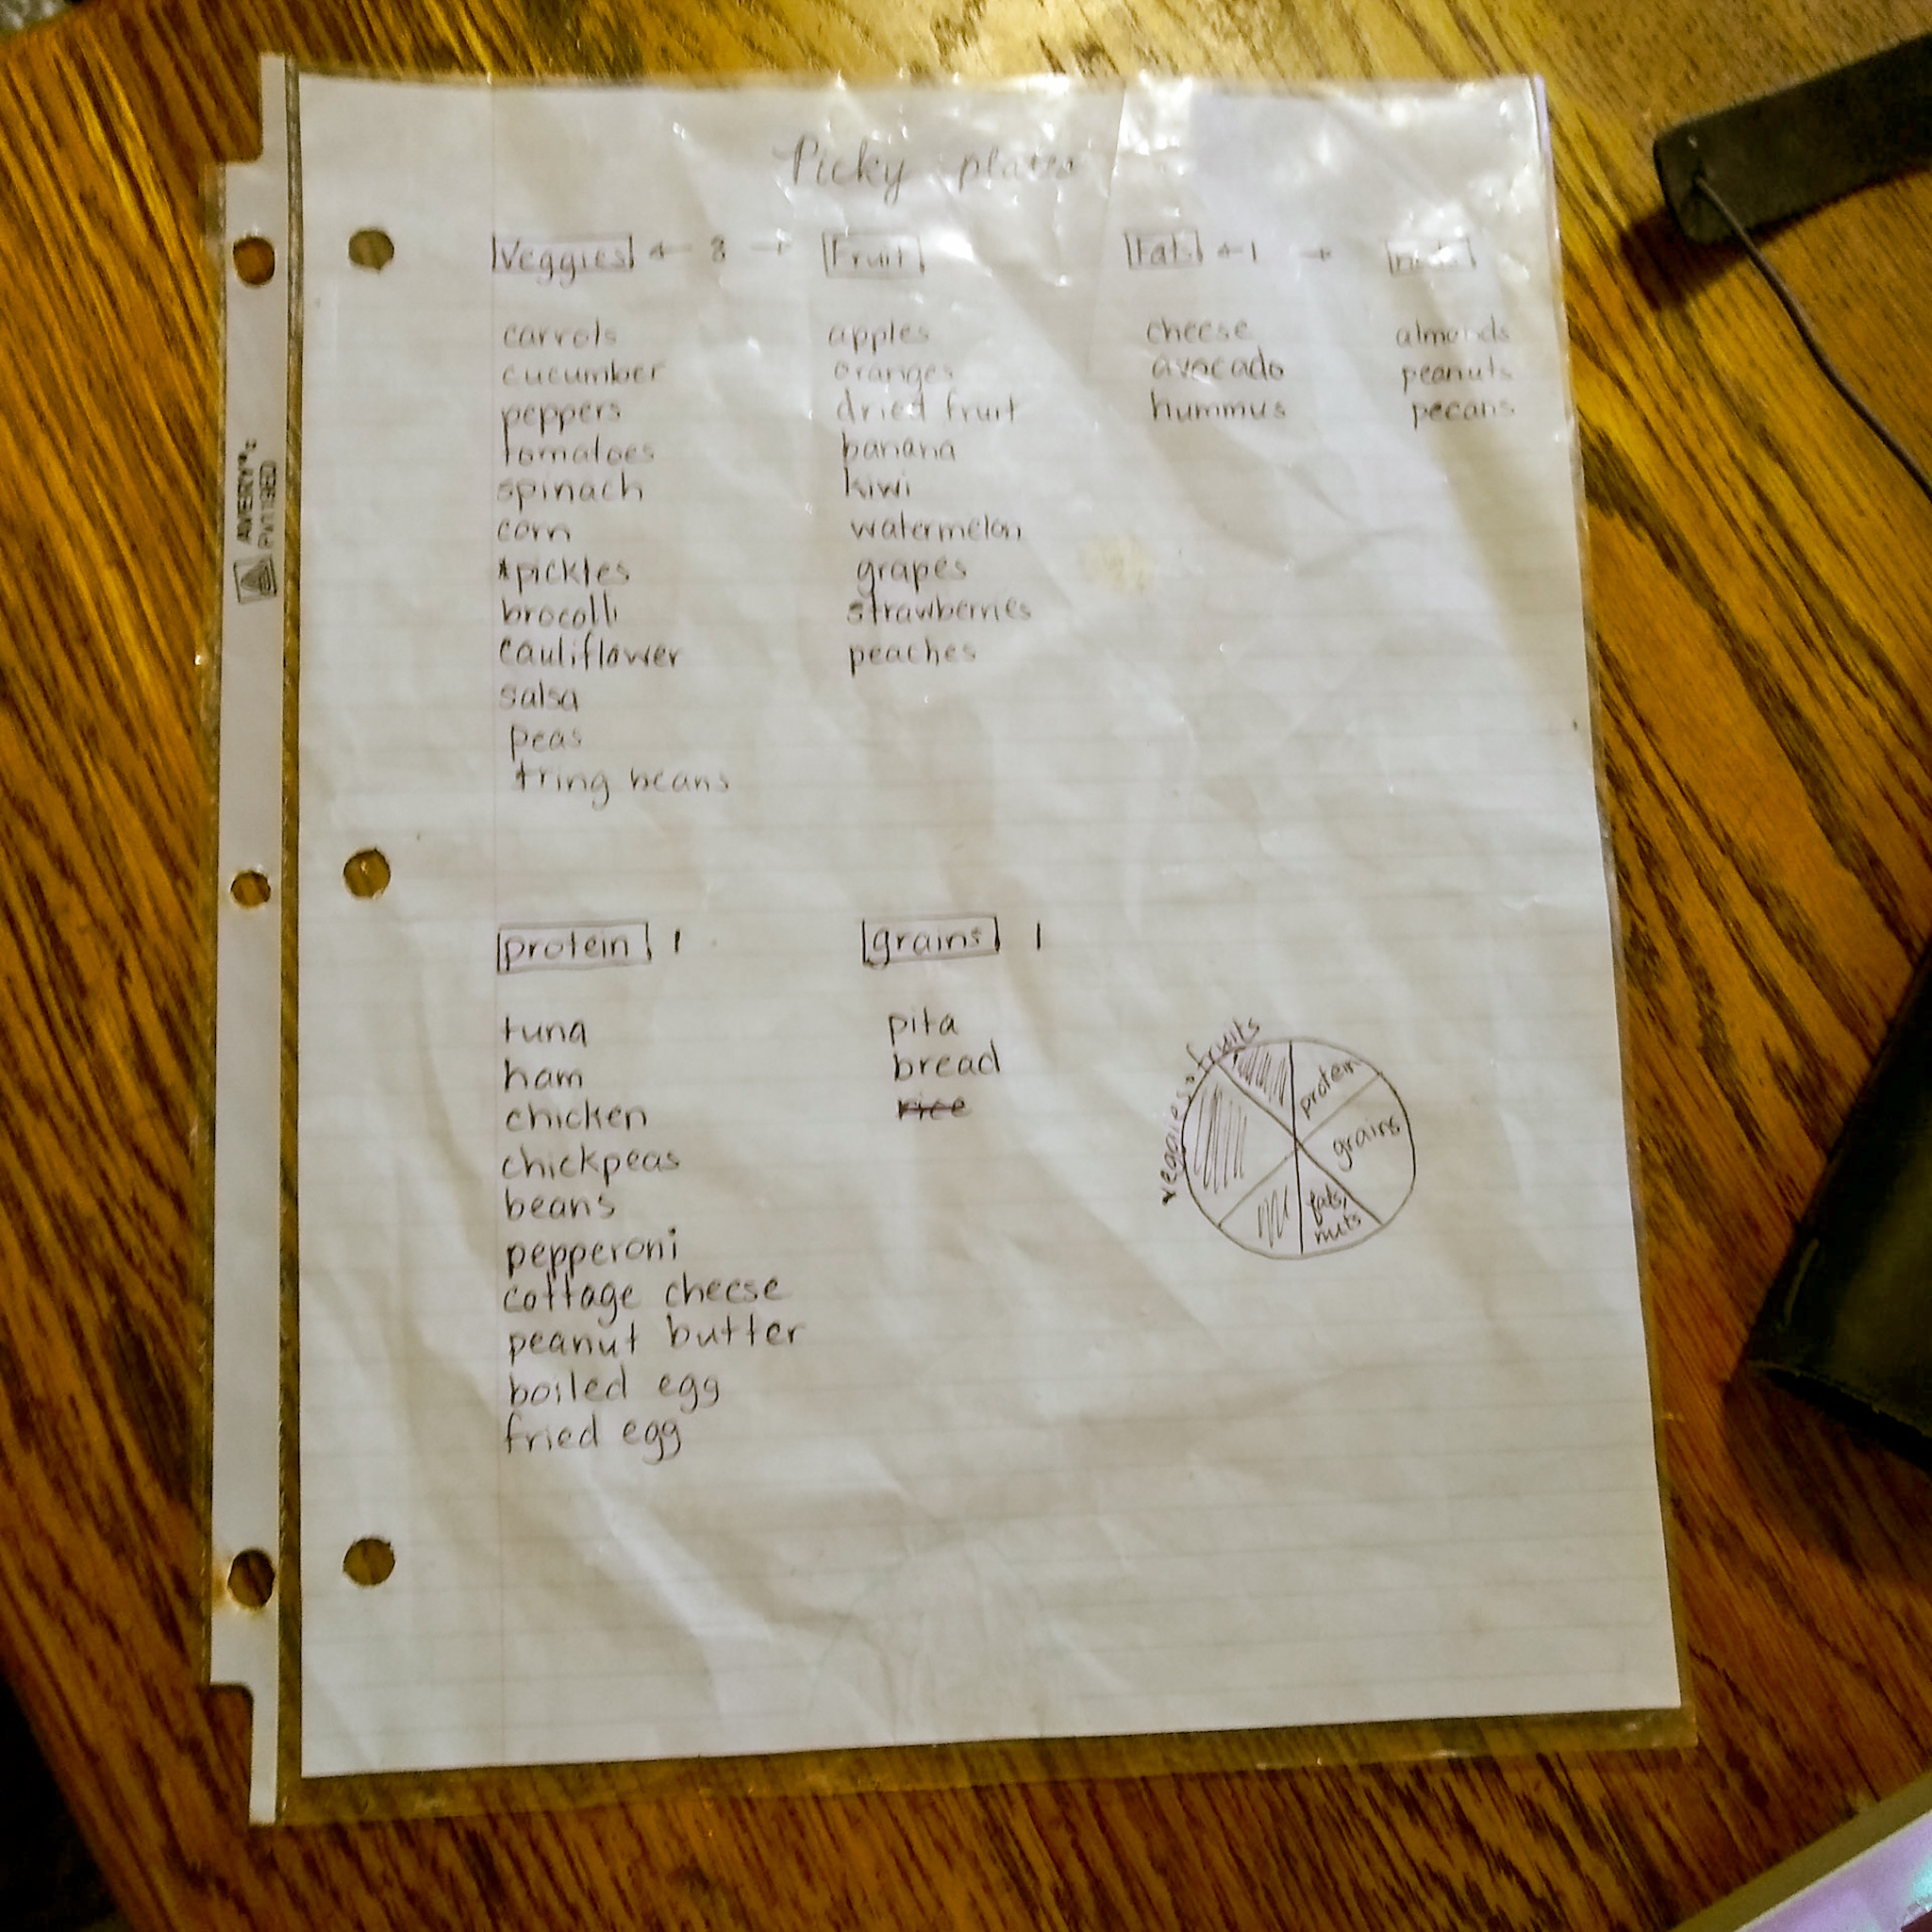 Picky plates
Veggies ← 3 → Fruit
carrots
cucumber
peppers
tomatoes
spinach
corn
*pickles
brocolli
cauliflower
salsa
peas
string beans
apples
oranges
dried fruit
banana
kiwi
watermelon
grapes
strawberries
peaches
Fat ← 1 →
cheese
avocado
hummus
almonds
peanuts
pecans
protein 1
tuna
ham
chicken
chickpeas
beans
pepperoni
cottage cheese
peanut butter
boiled egg
fried egg
grains 1
pita
bread
rice
veggies + fruits
protein
grains
fats,
nuts
AVERY